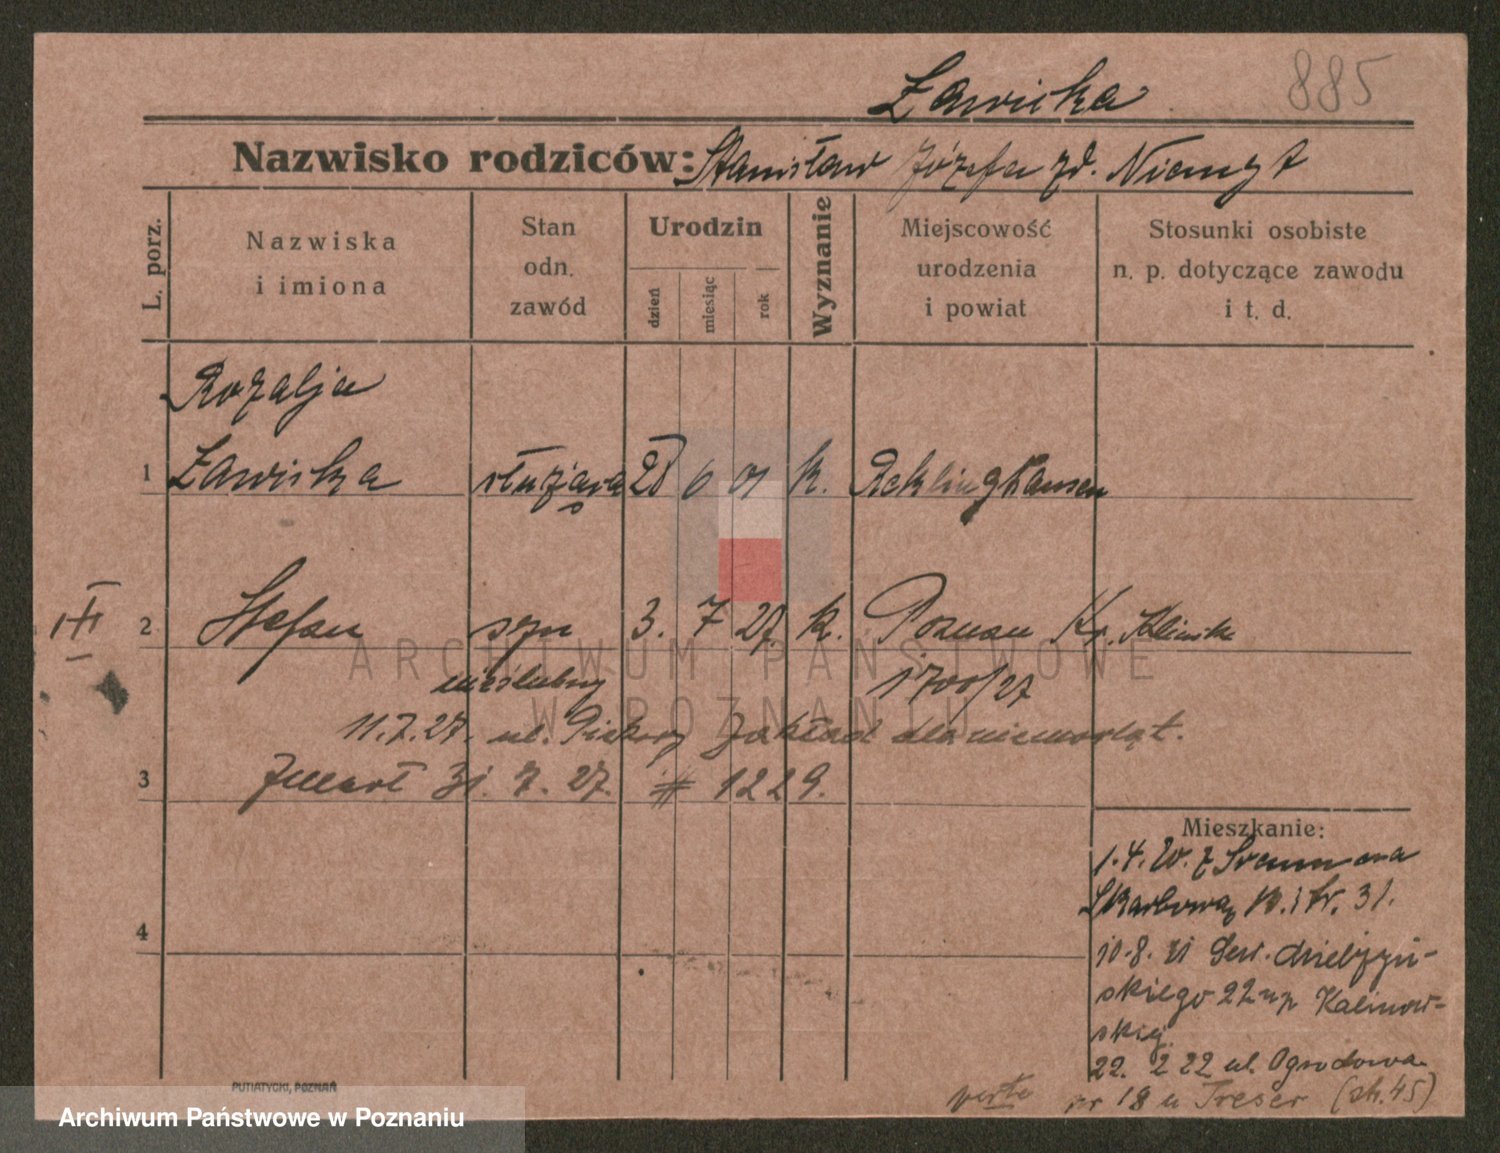 Zawicka 885
Nazwisko rodziców: Stanisław Józefa zd. Niemzt
L. porz.
Nazwiska
i imiona
Stan
odn.
zawód
Urodzin
dzień
miesiąc
rok
Wyznanie
Miejscowość
urodzenia
i powiat
Stosunki osobiste
n. p. dotyczące zawodu
i t. d.
Rozalja
1 Zawicka służąca 28 6 01 k. Reklinghausen
2 Stefan syn 3. 7 27. k. Poznan
nieślubny 1700/27
11.7.27. ul. Piekary Zakład dla niemowląt.
3 Zmarł 31. 7. 27. # 1229.
4
Mieszkanie:
1.4. z
Skarbowa 31.
10.8. 21 Gen.
skiego 22 up Kalinow-
skiej
22. 2 22 ul. Ogrodowa
verte nr 18 u Treser (str. 45)
PUTIATYCKI, POZNAŃ
ARCHIWUM PAŃSTWOWE
W POZNANIU
Archiwum Państwowe w Poznaniu